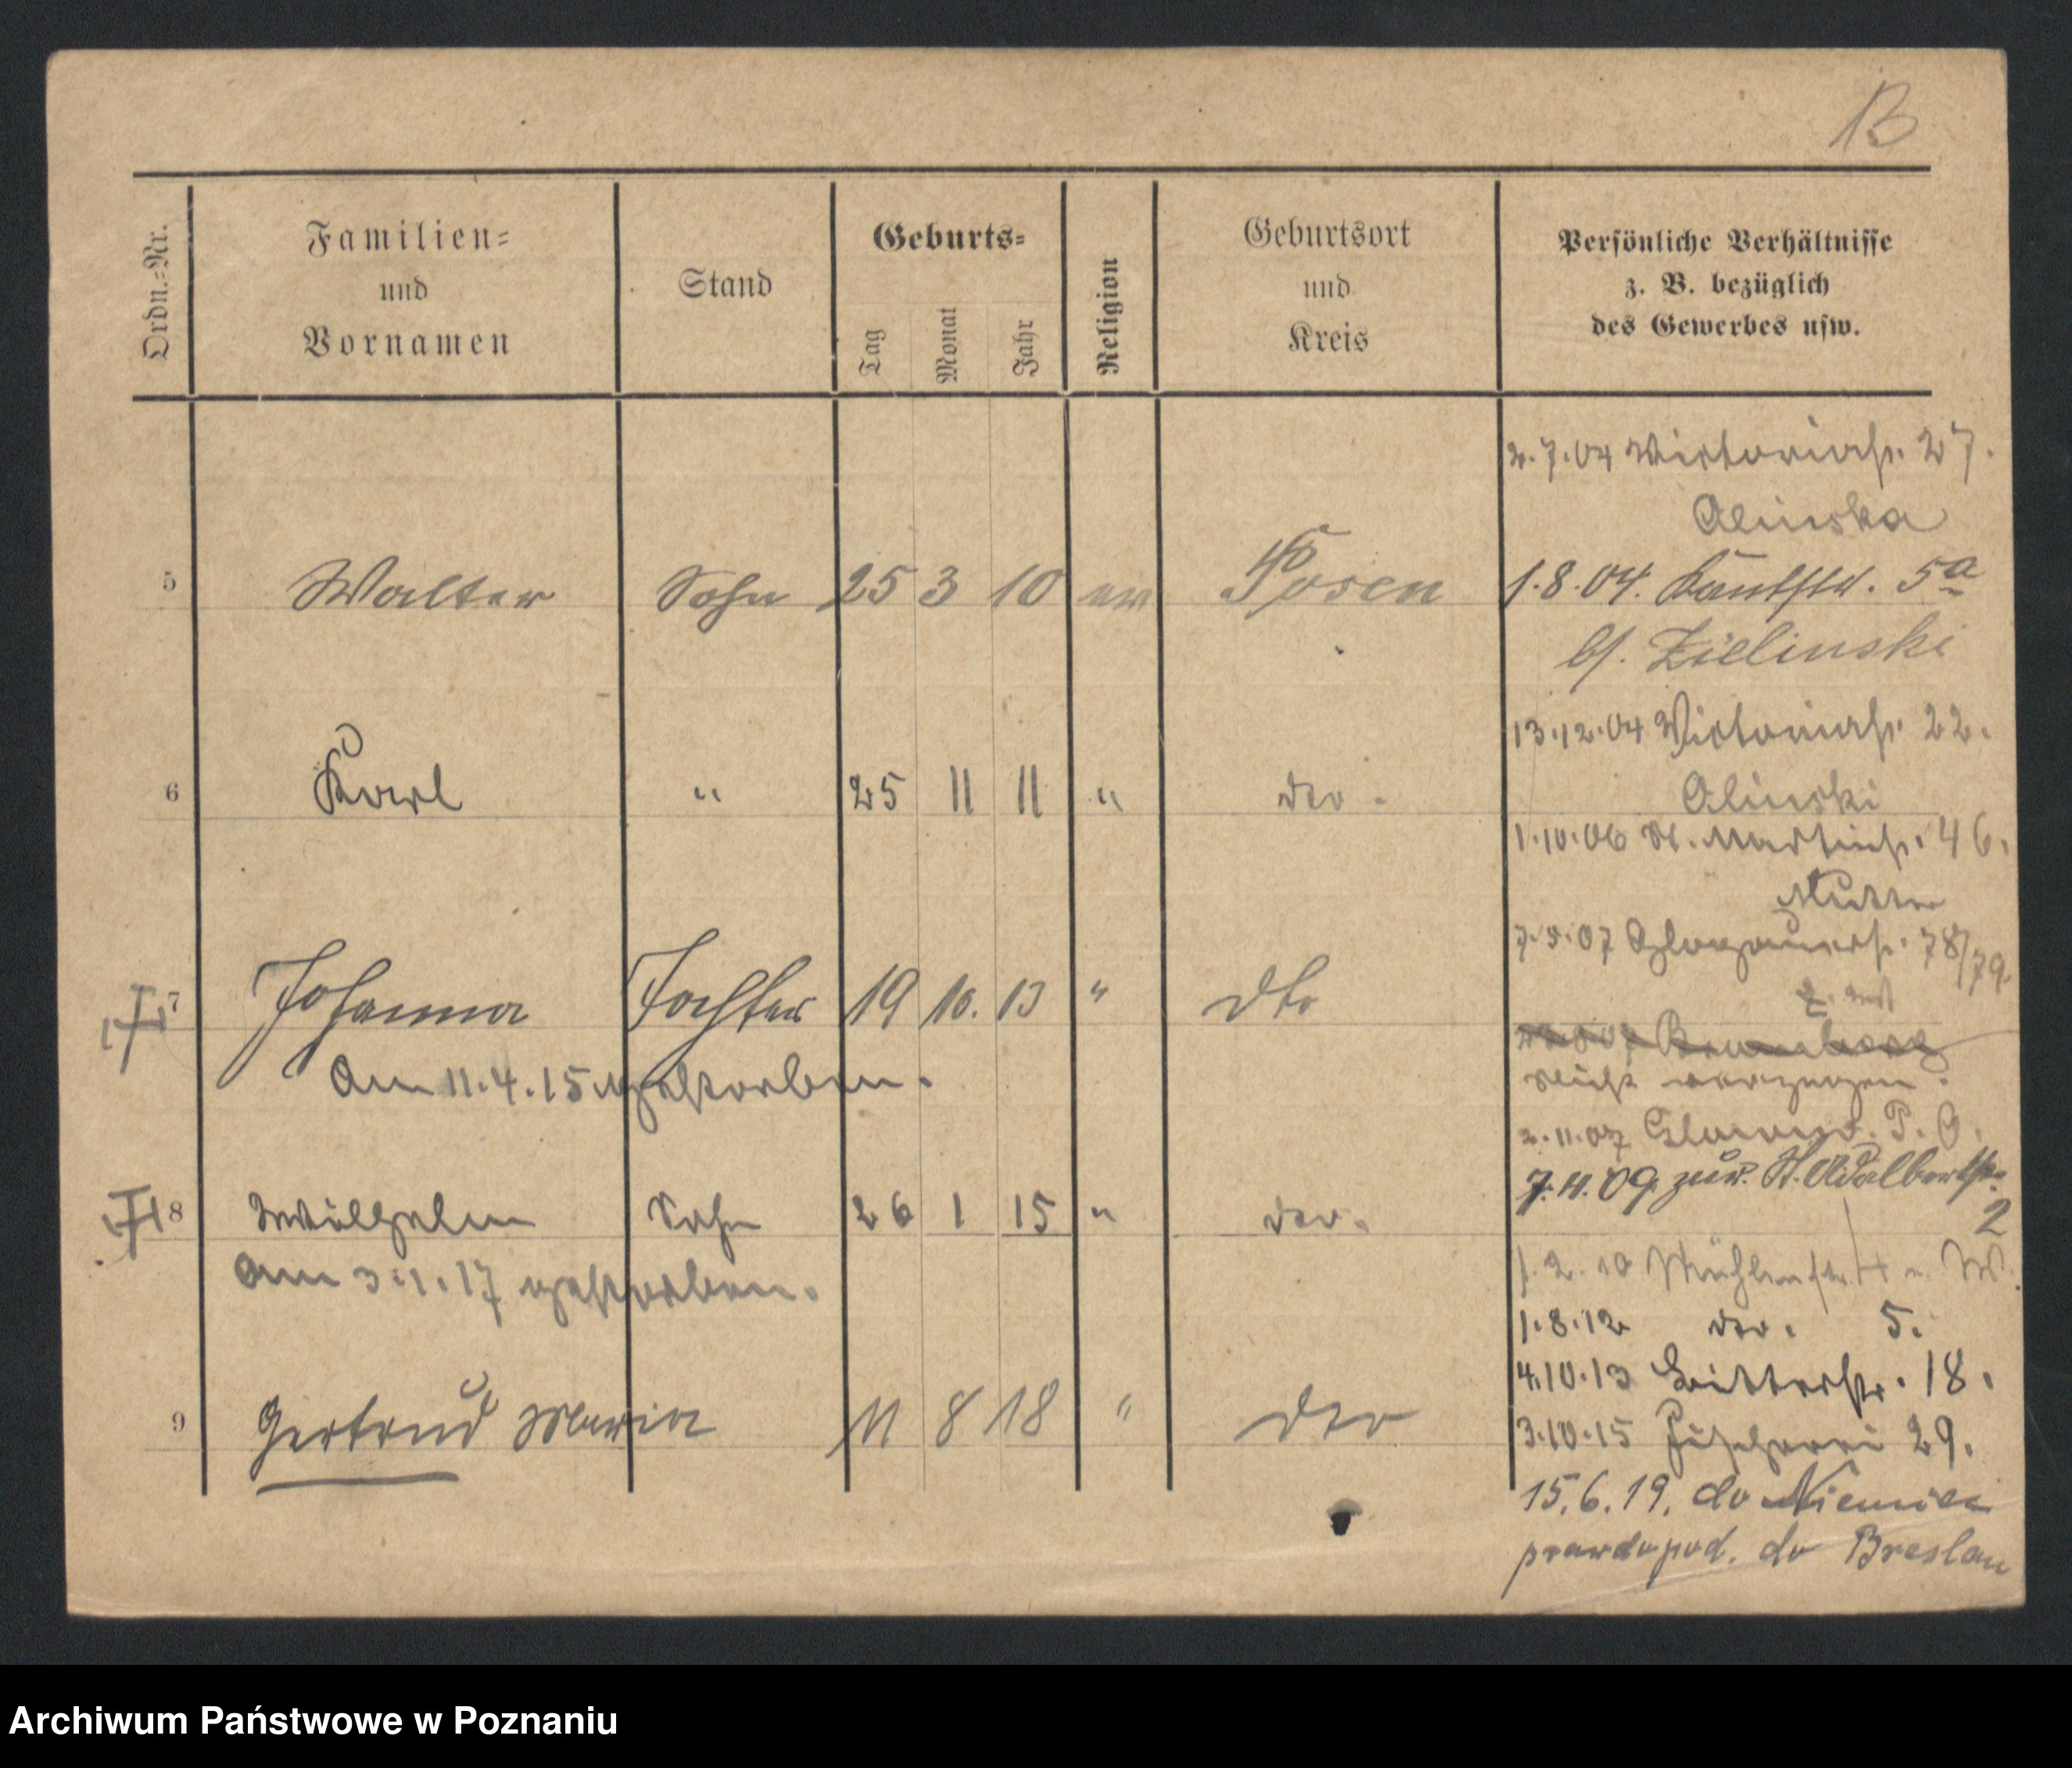 B
Ordn.-Nr.
Familien-
und
Vornamen
Stand
Geburts-
Tag
Monat
Jahr
Religion
Geburtsort
und
Kreis
Persönliche Verhältnisse
z. B. bezüglich
des Gewerbes usw.
2.7.04 Victoriastr. 27.
Alinska
5 Walter Sohn 25 3 10 ev Posen
1.8.04. Kantstr. 5a
b/. Zielinski
13.12.04 Victoriastr. 22.
6 Karl " 25 11 11 " dto.
Alinski
1.10.06 St. Martinstr. 46.
Mutter
07 Glogauerstr. 78/79
7 Johanna Tochter 19 10. 13 " dto
Am 11.4.15 gestorben.
nicht verzogen.
2.11.07
7.11.09 zur. St. Adalbertstr. 2
8 Wilhelm Sohn 26 1 15 " dto.
Am 3.1.17 gestorben.
1.2.10 Mühlenstr.
1.8.12 dto. 5.
4.10.13 Ritterstr. 18.
9 Gertrud Maria 11 8 18 " dto
3.10.15 Fischerei 29.
15.6.19. do Niemiec
prawdopod. do Breslau
Archiwum Państwowe w Poznaniu